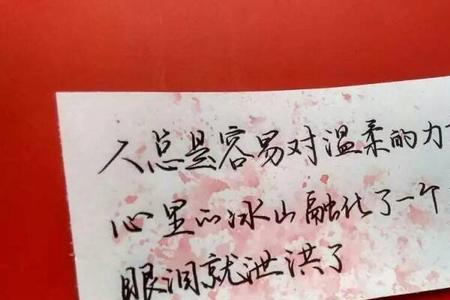 人总是容易对温柔的力
心里的冰山融化了一个
眼泪就泄洪了